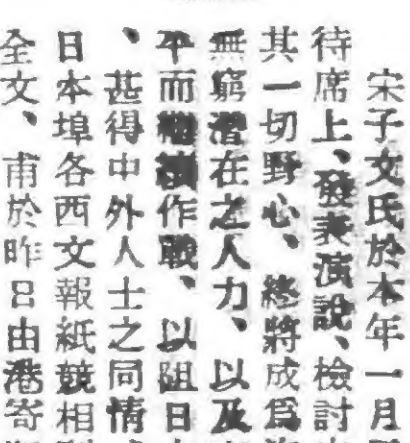 宋子文氏於本年一月
待席上、發表演說、檢討
其一切野心、終將成爲
無窮潛在之人力、以及
平而繼續作戰、以阻日
、甚得中外人士之同情
日本埠各西文報紙競相
全文、甫於昨日由港寄